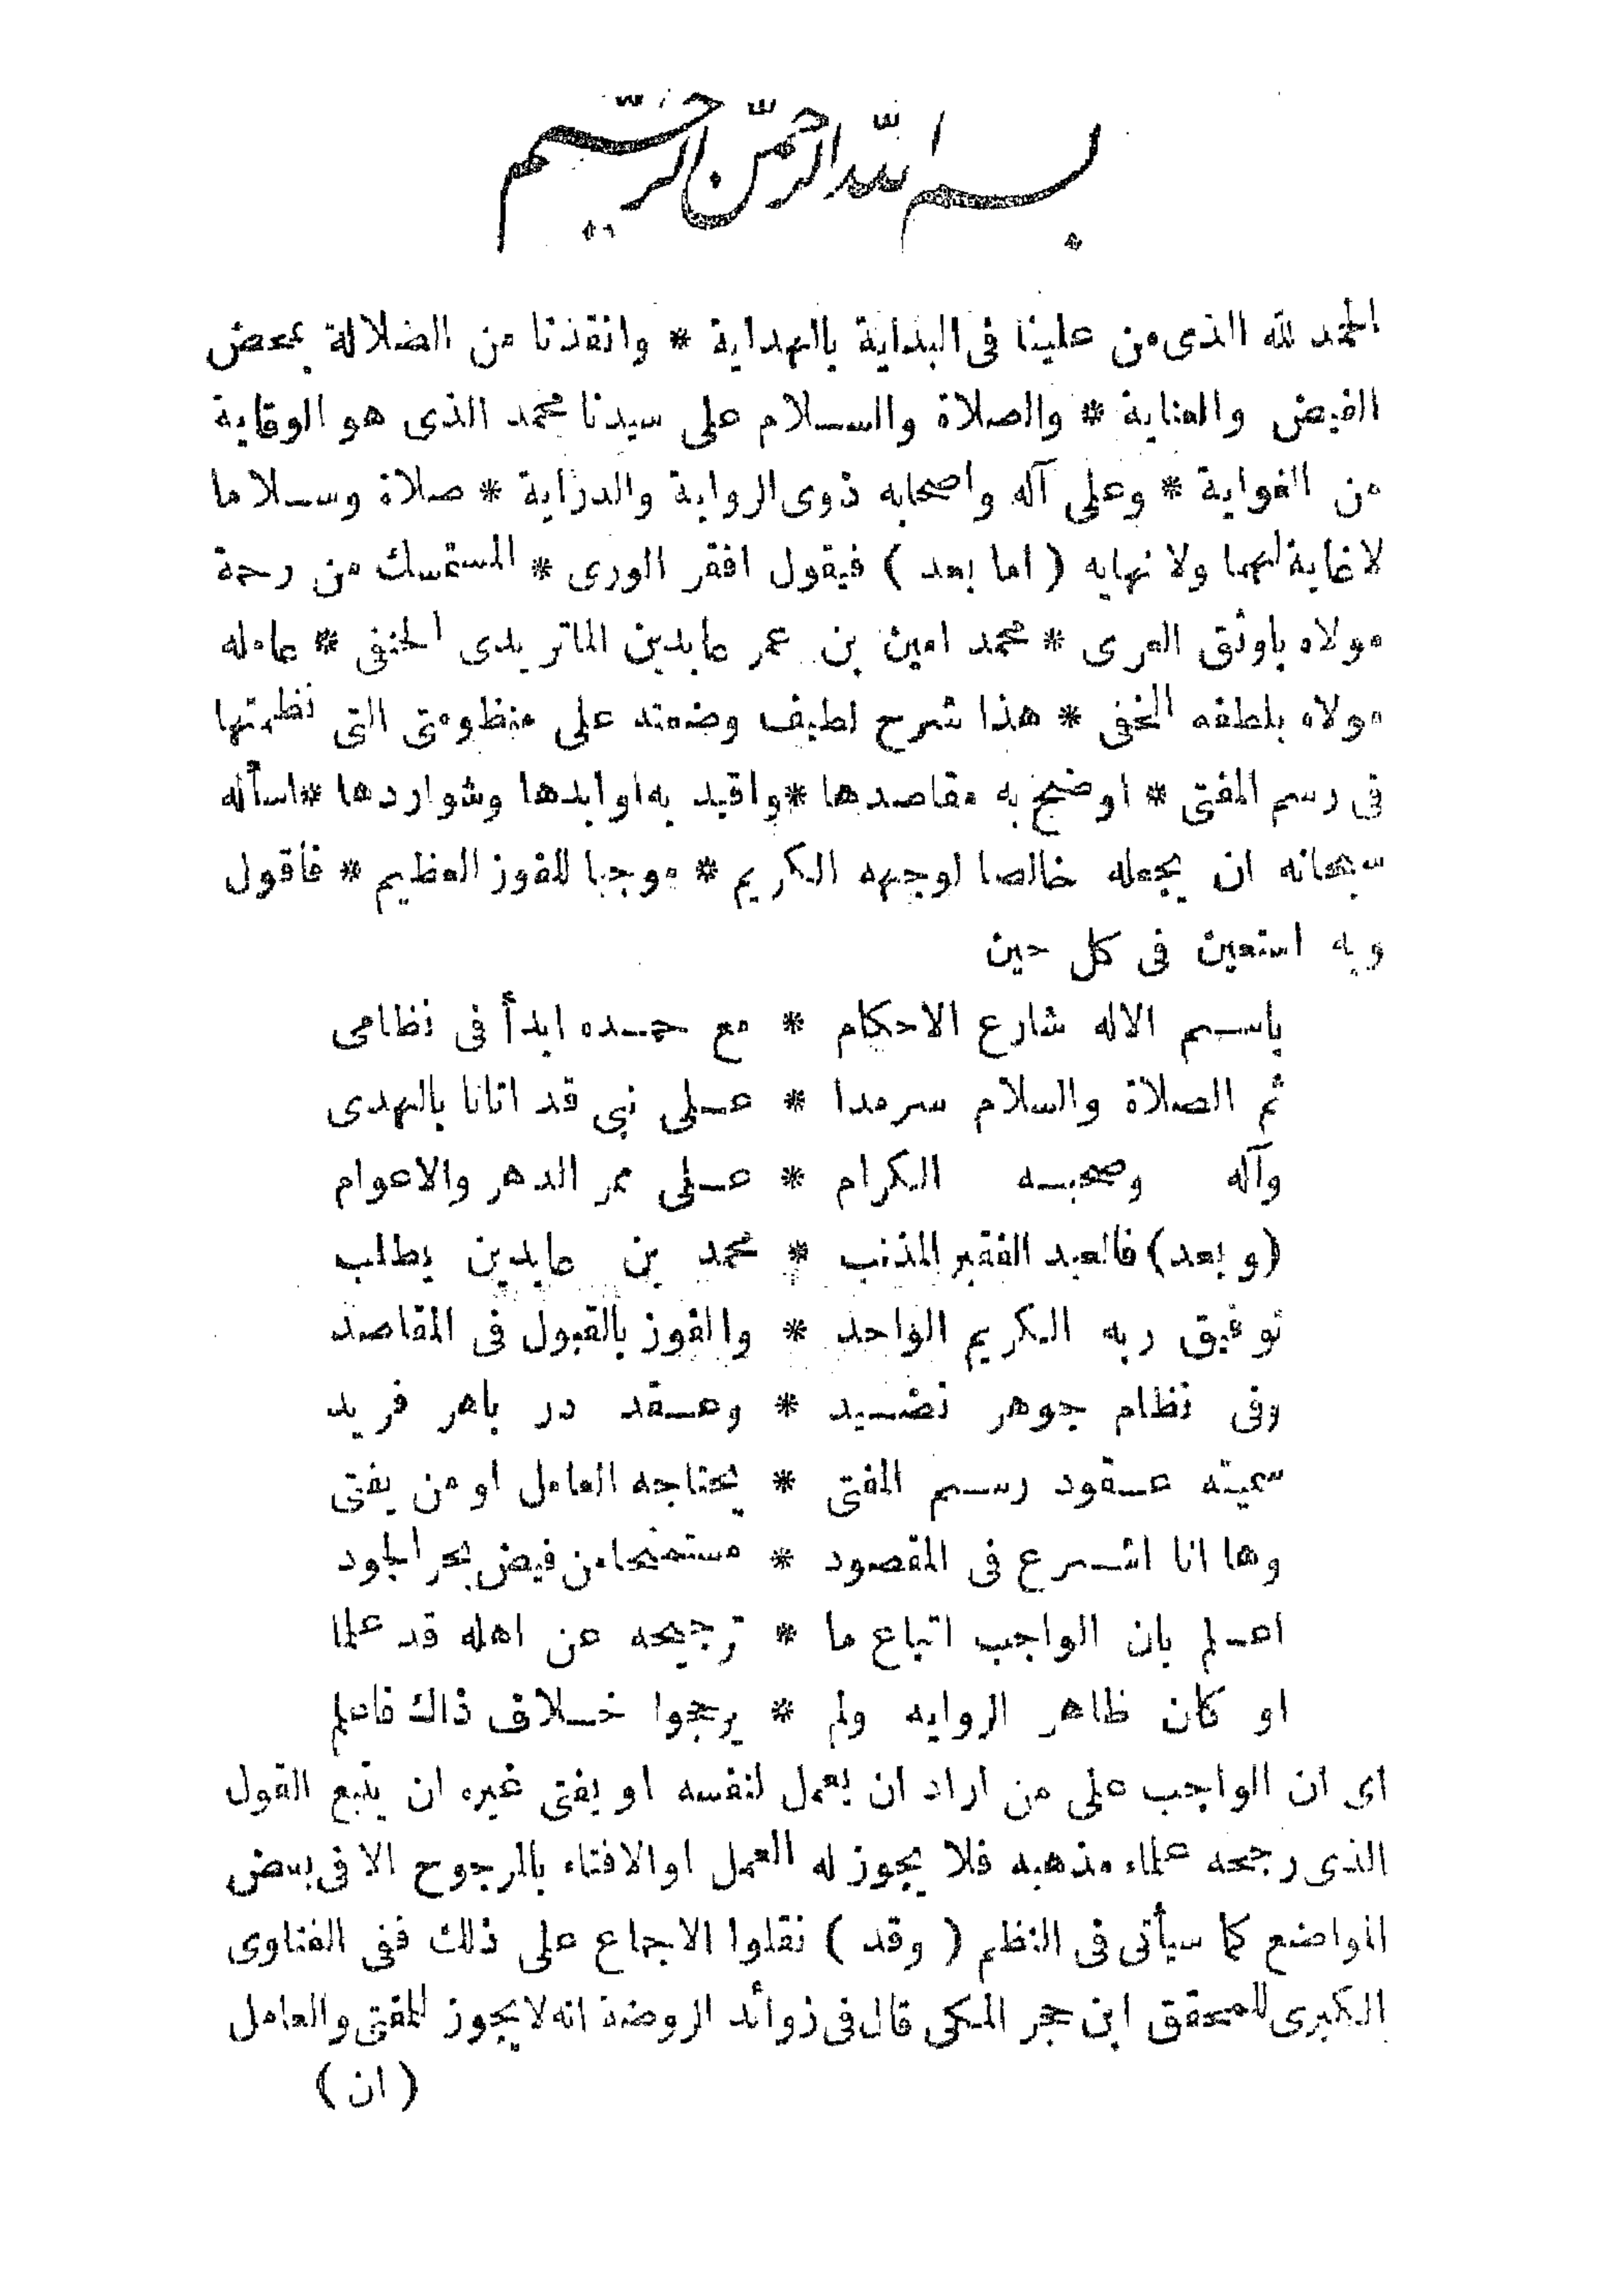 بسم الله الرحمن الرحيم
الحمد لله الذى من علينا فى البداية بالهداية * وانقذنا من الضلالة بمحض
الفيض والعناية * والصلاة والسلام على سيدنا محمد الذى هو الوقاية
من الغواية * وعلى آله واصحابه ذوى الرواية والدراية * صلاة وسلاما
لا غاية لهما ولا نهايه ( اما بعد ) فيقول افقر الورى * المستمسك من رحمة
مولاه باوثق العرى * محمد امين بن عمر عابدين الماتريدى الحنفى * عامله
مولاه بلطفه الخفى * هذا شرح لطيف وضعته على منظومتى التى نظمتها
فى رسم المفتى * اوضح به مقاصدها * واقيد به اوابدها وشواردها * اسأله
سبحانه ان يجعله خالصا لوجهه الكريم * موجبا للفوز العظيم * فاقول
وبه استعين فى كل حين
باسم الاله شارع الاحكام * مع حمده ابدأ فى نظامى
ثم الصلاة والسلام سرمدا * على نبى قد اتانا بالهدى
وآله وصحبه الكرام * على ممر الدهر والاعوام
(وبعد) فالعبد الفقير المذنب * محمد بن عابدين يطلب
توفيق ربه الكريم الواحد * والفوز بالقبول فى المقاصد
وفى نظام جوهر نضيد * وعقد در باهر فريد
سميته عقود رسم المفتى * يحتاجه العامل او من يفتى
وها انا اشرع فى المقصود * مستمنحا من فيض بحر الجود
اعلم بان الواجب اتباع ما * ترجيحه عن اهله قد علما
او كان ظاهر الروايه ولم * يرجحوا خلاف ذاك فاعلم
اى ان الواجب على من اراد ان يعمل لنفسه او يفتى غيره ان يتبع القول
الذى رجحه علماء مذهبه فلا يجوز له العمل او الافتاء بالمرجوح الا فى بعض
المواضع كما سيأتى فى النظم ( وقد ) نقلوا الاجماع على ذلك ففى الفتاوى
الكبرى للمحقق ابن حجر المكى قال فى زوائد الروضة انه لا يجوز للمفتى والعامل
( ان )